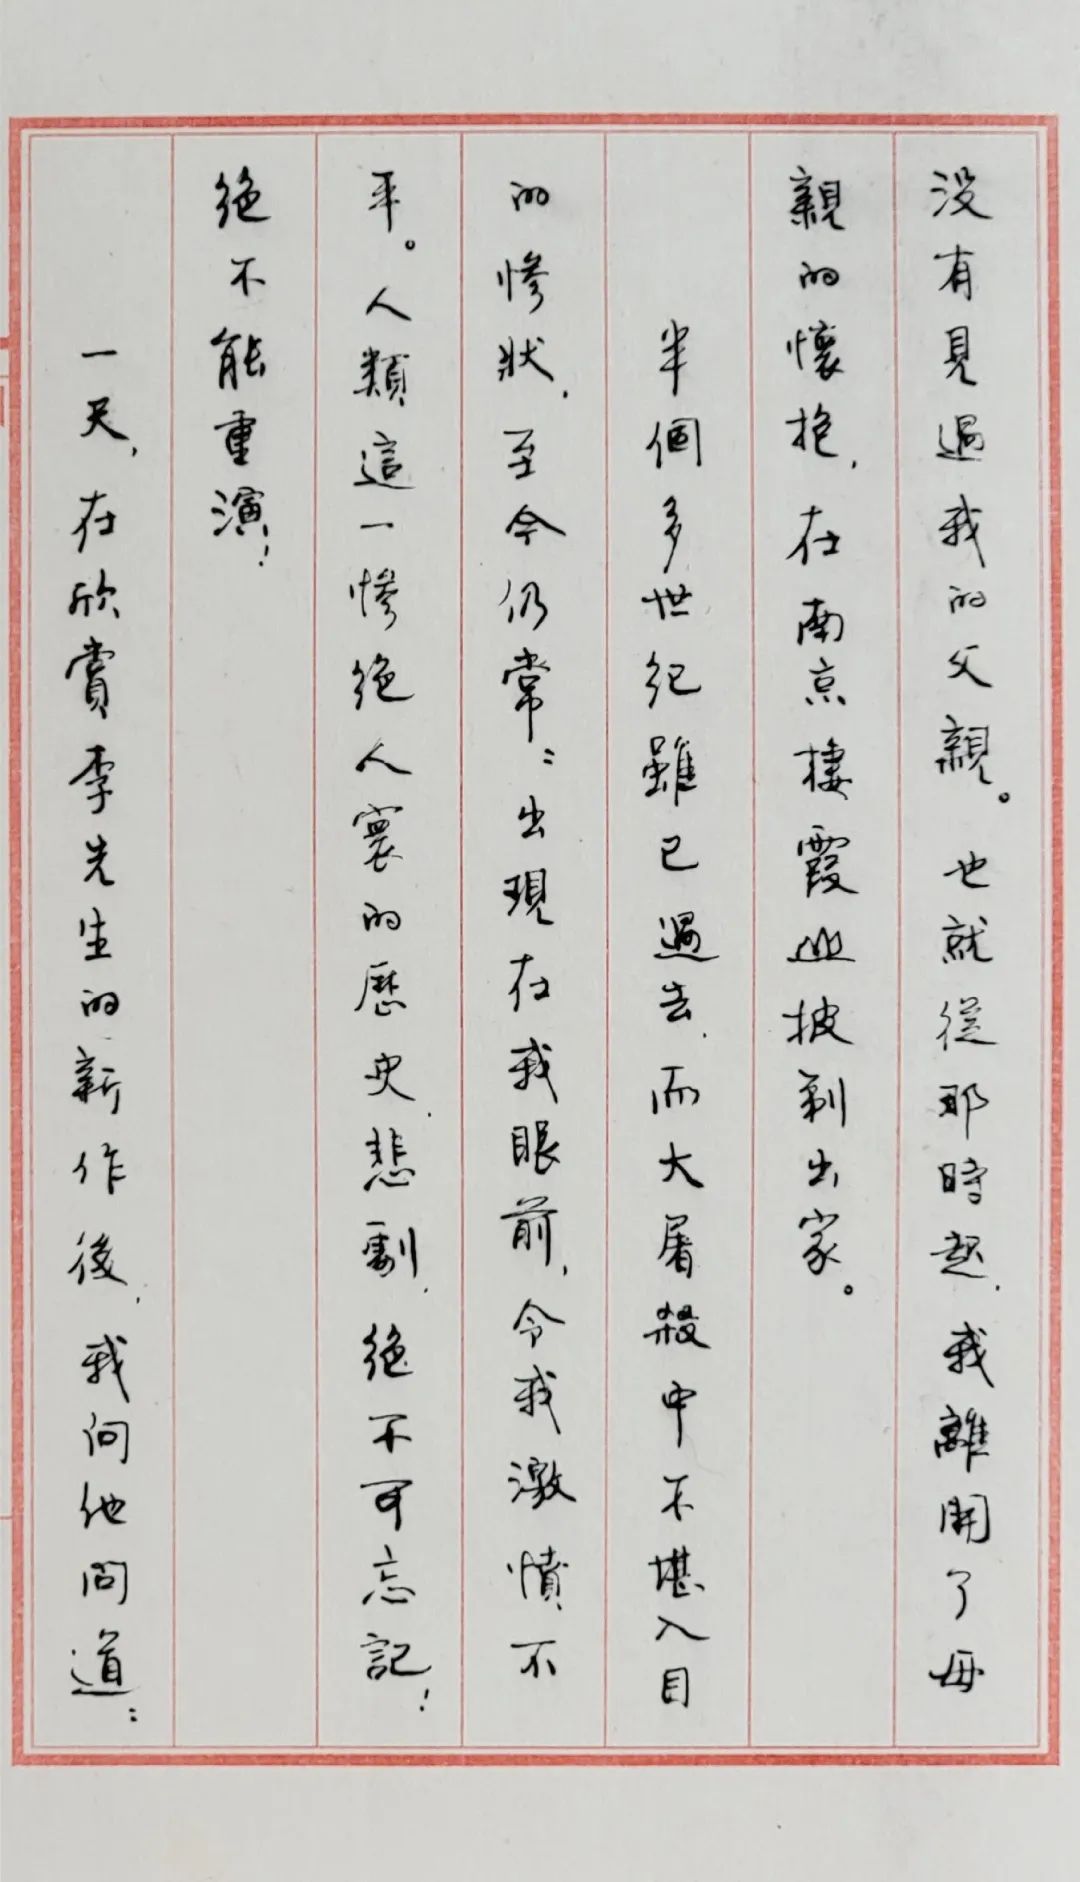 没有見過我的父親。也就從那時起,我離開了母
親的懷抱,在南京棲霞山披剃出家。
半個多世紀雖已過去,而大屠殺中不堪入目
的慘狀,至今仍常:出現在我眼前,令我激憤不
平。人類這一慘絕人寰的歷史悲劇,絕不可忘記!
絕不能重演!
一天,在欣賞李先生的新作後,我向他問道: